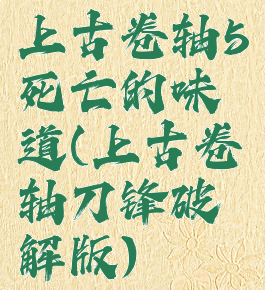 上古卷轴5
死亡的味
道(上古卷
轴刀锋破
解版)